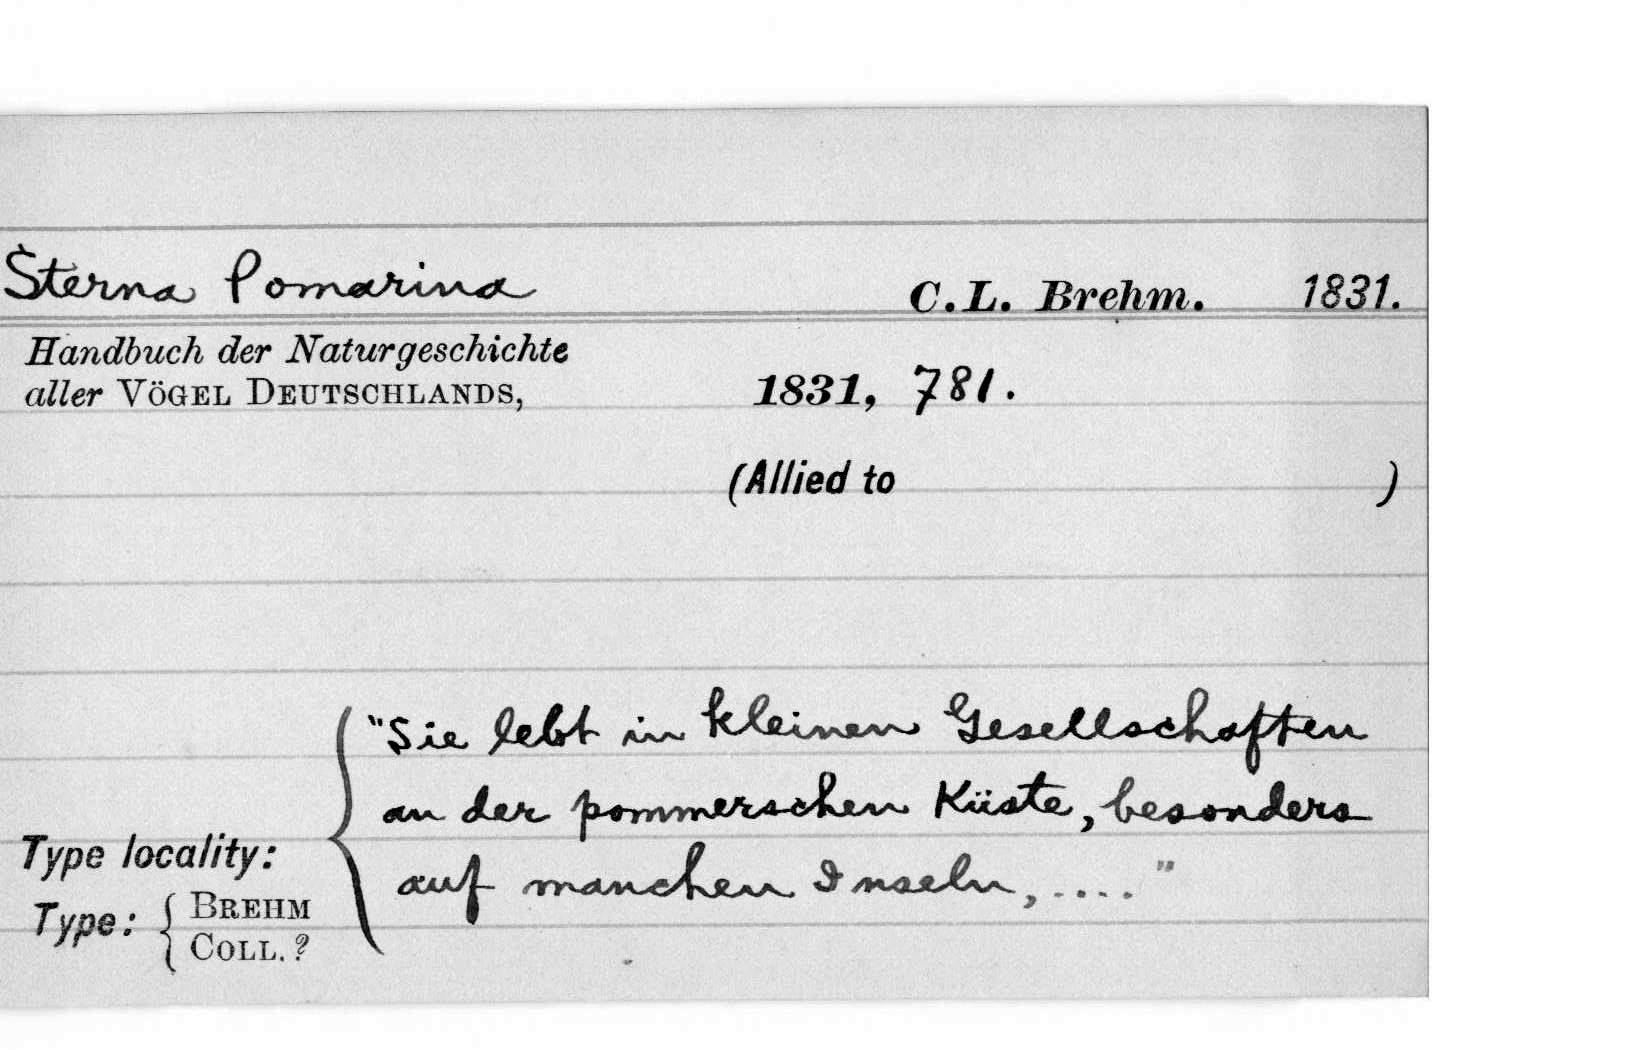 Sterna Pomarina C.L. Brehm. 1831.
Handbuch der Naturgeschichte
aller VÖGEL DEUTSCHLANDS, 1831, 781.
(Allied to )
"Sie lebt in kleinen Gesellschaften
an der pommerschen Küste, besonders
auf manchen Inseln, ...."
Type locality:
Type: { BREHM
COLL. ?